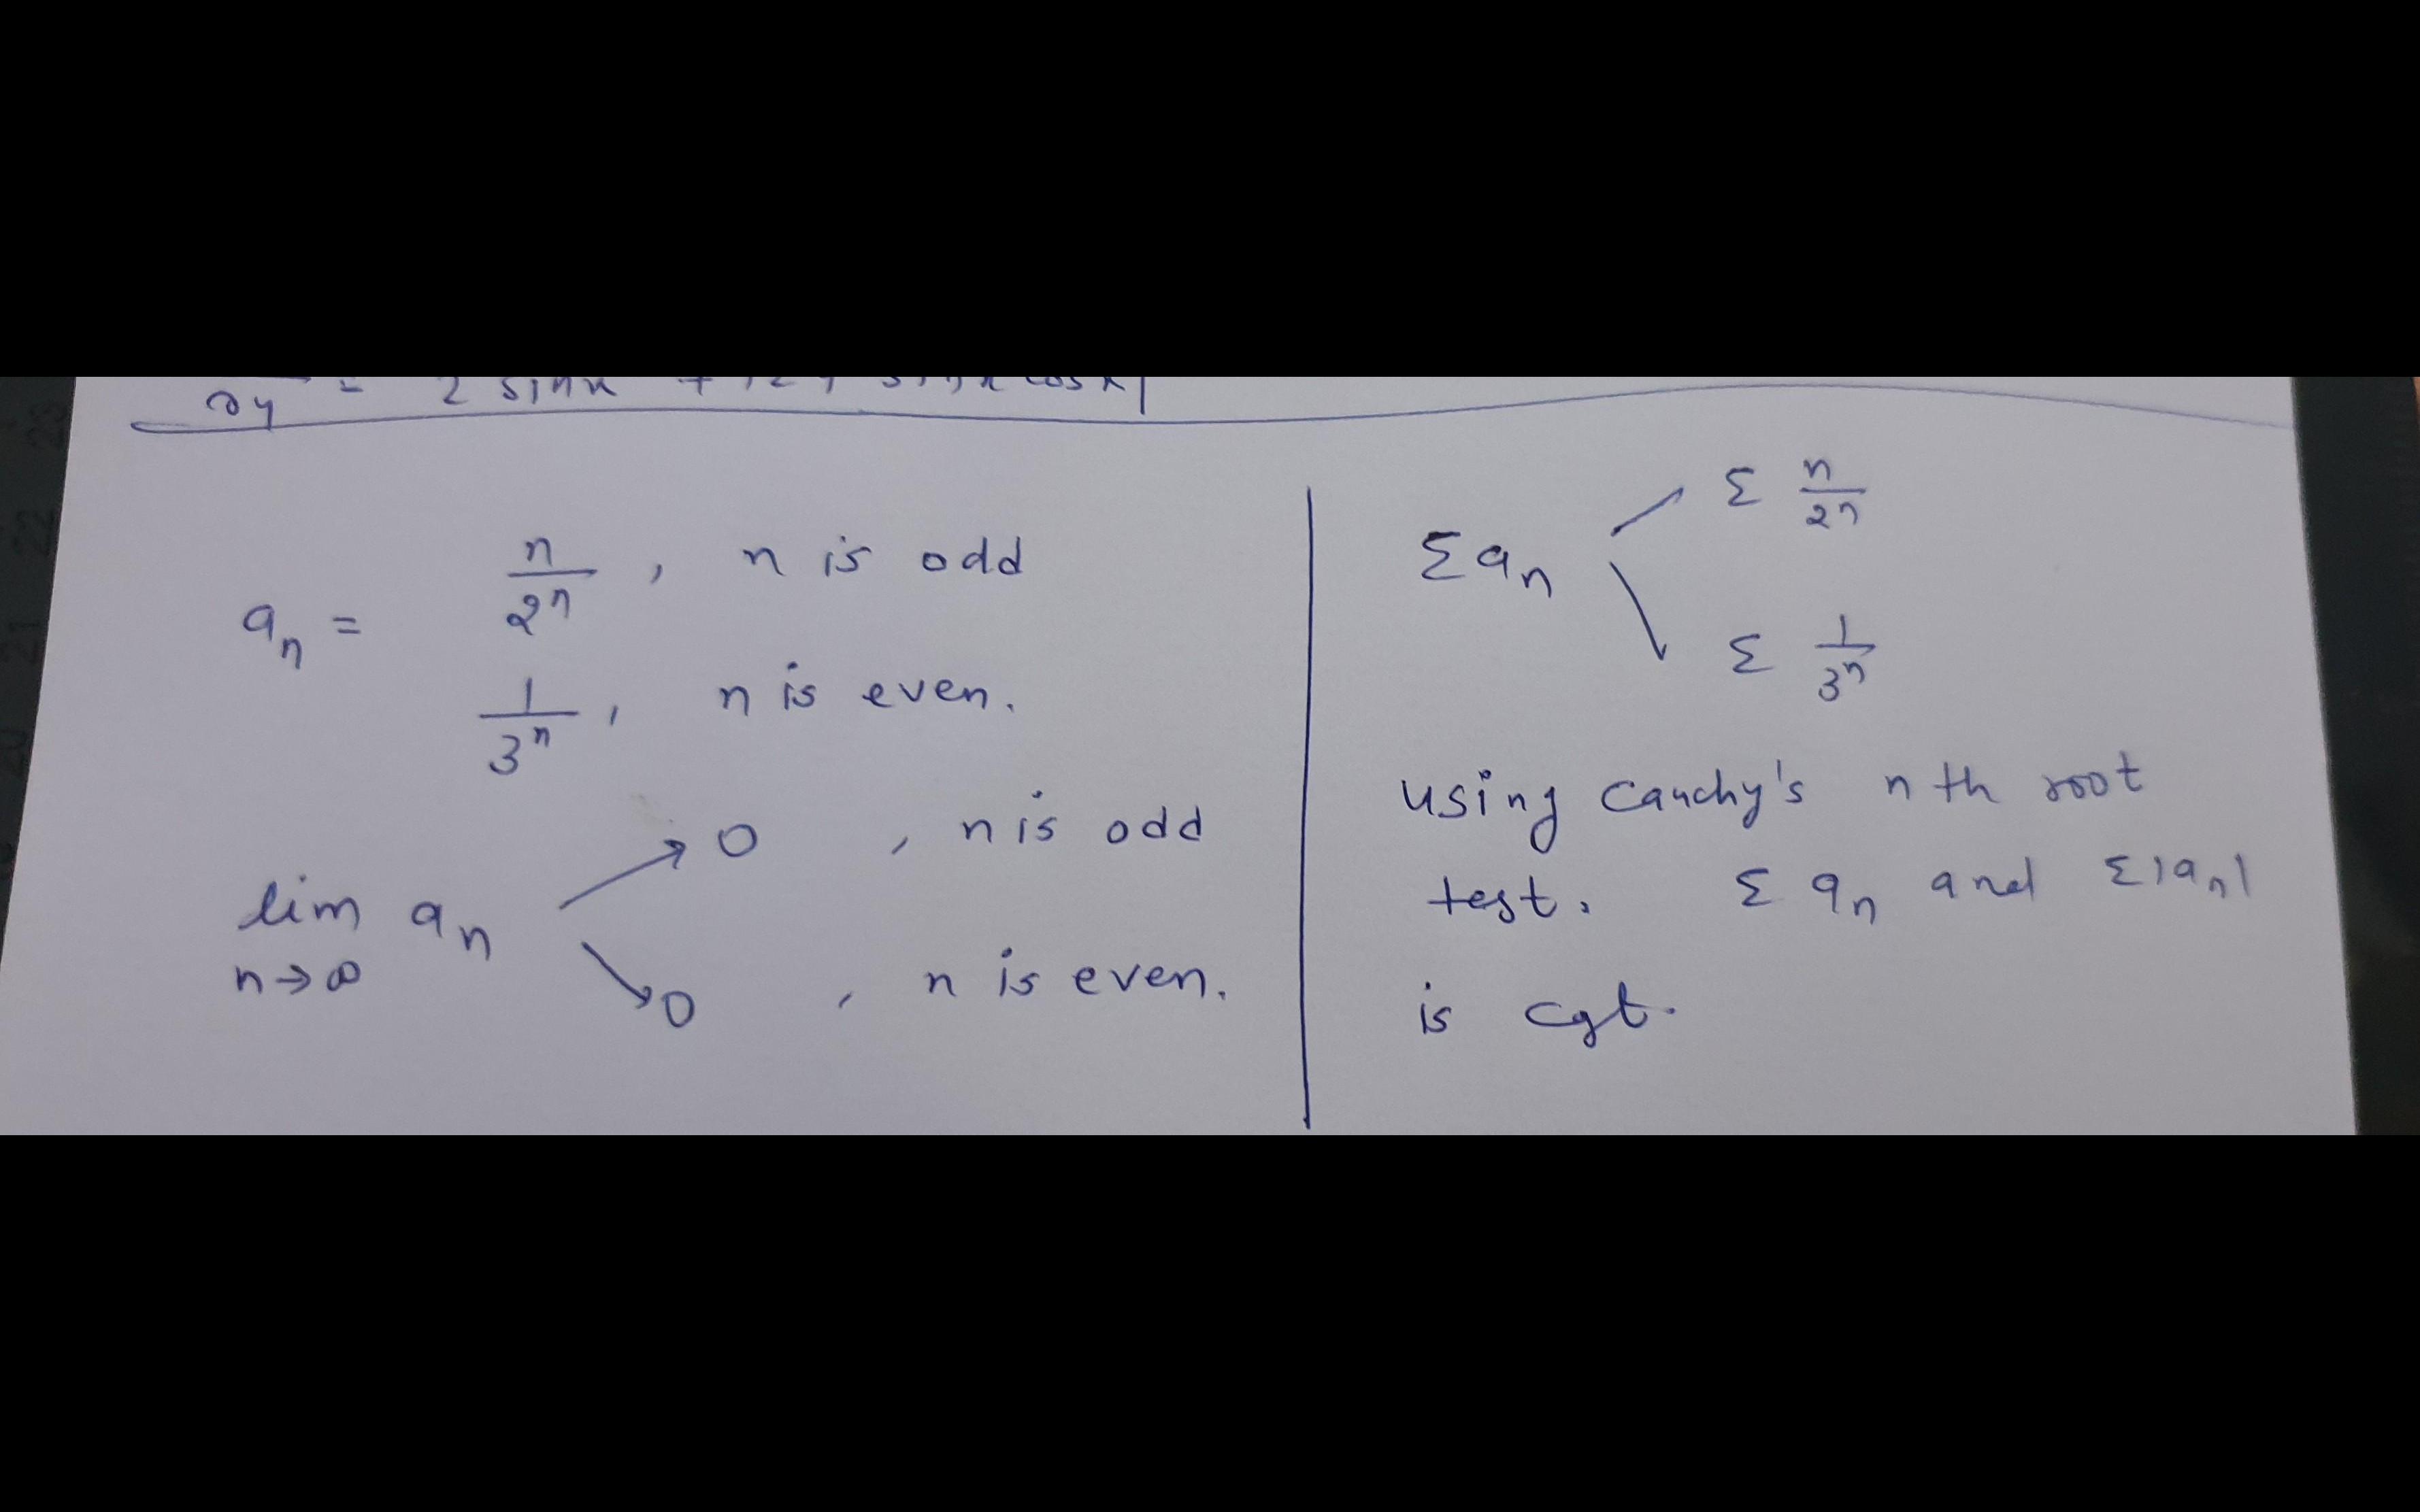 = 2 sinx
a_n =
n/2^n , n is odd
1/3^n , n is even.
lim a_n
n→∞
↗ 0 , n is odd
↘ 0 , n is even.
Σ a_n
↗ Σ n/2^n
↘ Σ 1/3^n
using Cauchy's nth root
test. Σ a_n and Σ|a_n|
is cgt.